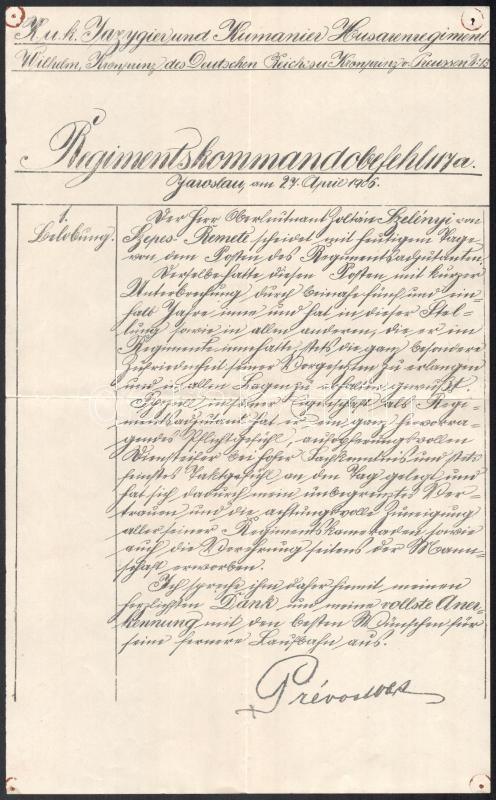 K.u.k. Jazygier und Kumanier Husarenregiment
Wilhelm, Kronprinz des Deutschen Reichs u. Kronprinz v. Preussen № 13
Regimentskommandobefehl № 117a.
Jaroslau, am 27. April 1906.
1.
Belobung.
Der Herr Oberleutnant Zoltán Szelényi von
Szepes-Remete scheidet mit heutigem Tage
von dem Posten des Regimentsadjutanten.
Derselbe hatte diesen Posten mit kurzer
Unterbrechung durch beinahe fünf und ein-
halb Jahre inne und hat in dieser Stel-
lung sowie in allen anderen, die er im
Regimente innehatte stets die ganz besondere
Zufriedenheit seiner Vorgesetzten zu erlangen
und in allen Lagen zu erhalten gewußt.
Speziell in seiner Eigenschaft als Regi-
mentsadjutant hat er ein ganz hervorra-
gendes Pflichtgefühl, aufopferungsvollen
Diensteifer bei hoher Fachkenntnis und stets
feinstes Taktgefühl an den Tag gelegt und
hat sich dadurch mein unbegrenztes Ver-
trauen und die achtungsvolle Zuneigung
aller seiner Regimentskameraden sowie
auch die Verehrung seitens der Mann-
schaft erworben.
Ich spreche ihm daher hiemit meinen
herzlichsten Dank und meine vollste Aner-
kennung mit den besten Wünschen für
seine fernere Laufbahn aus.